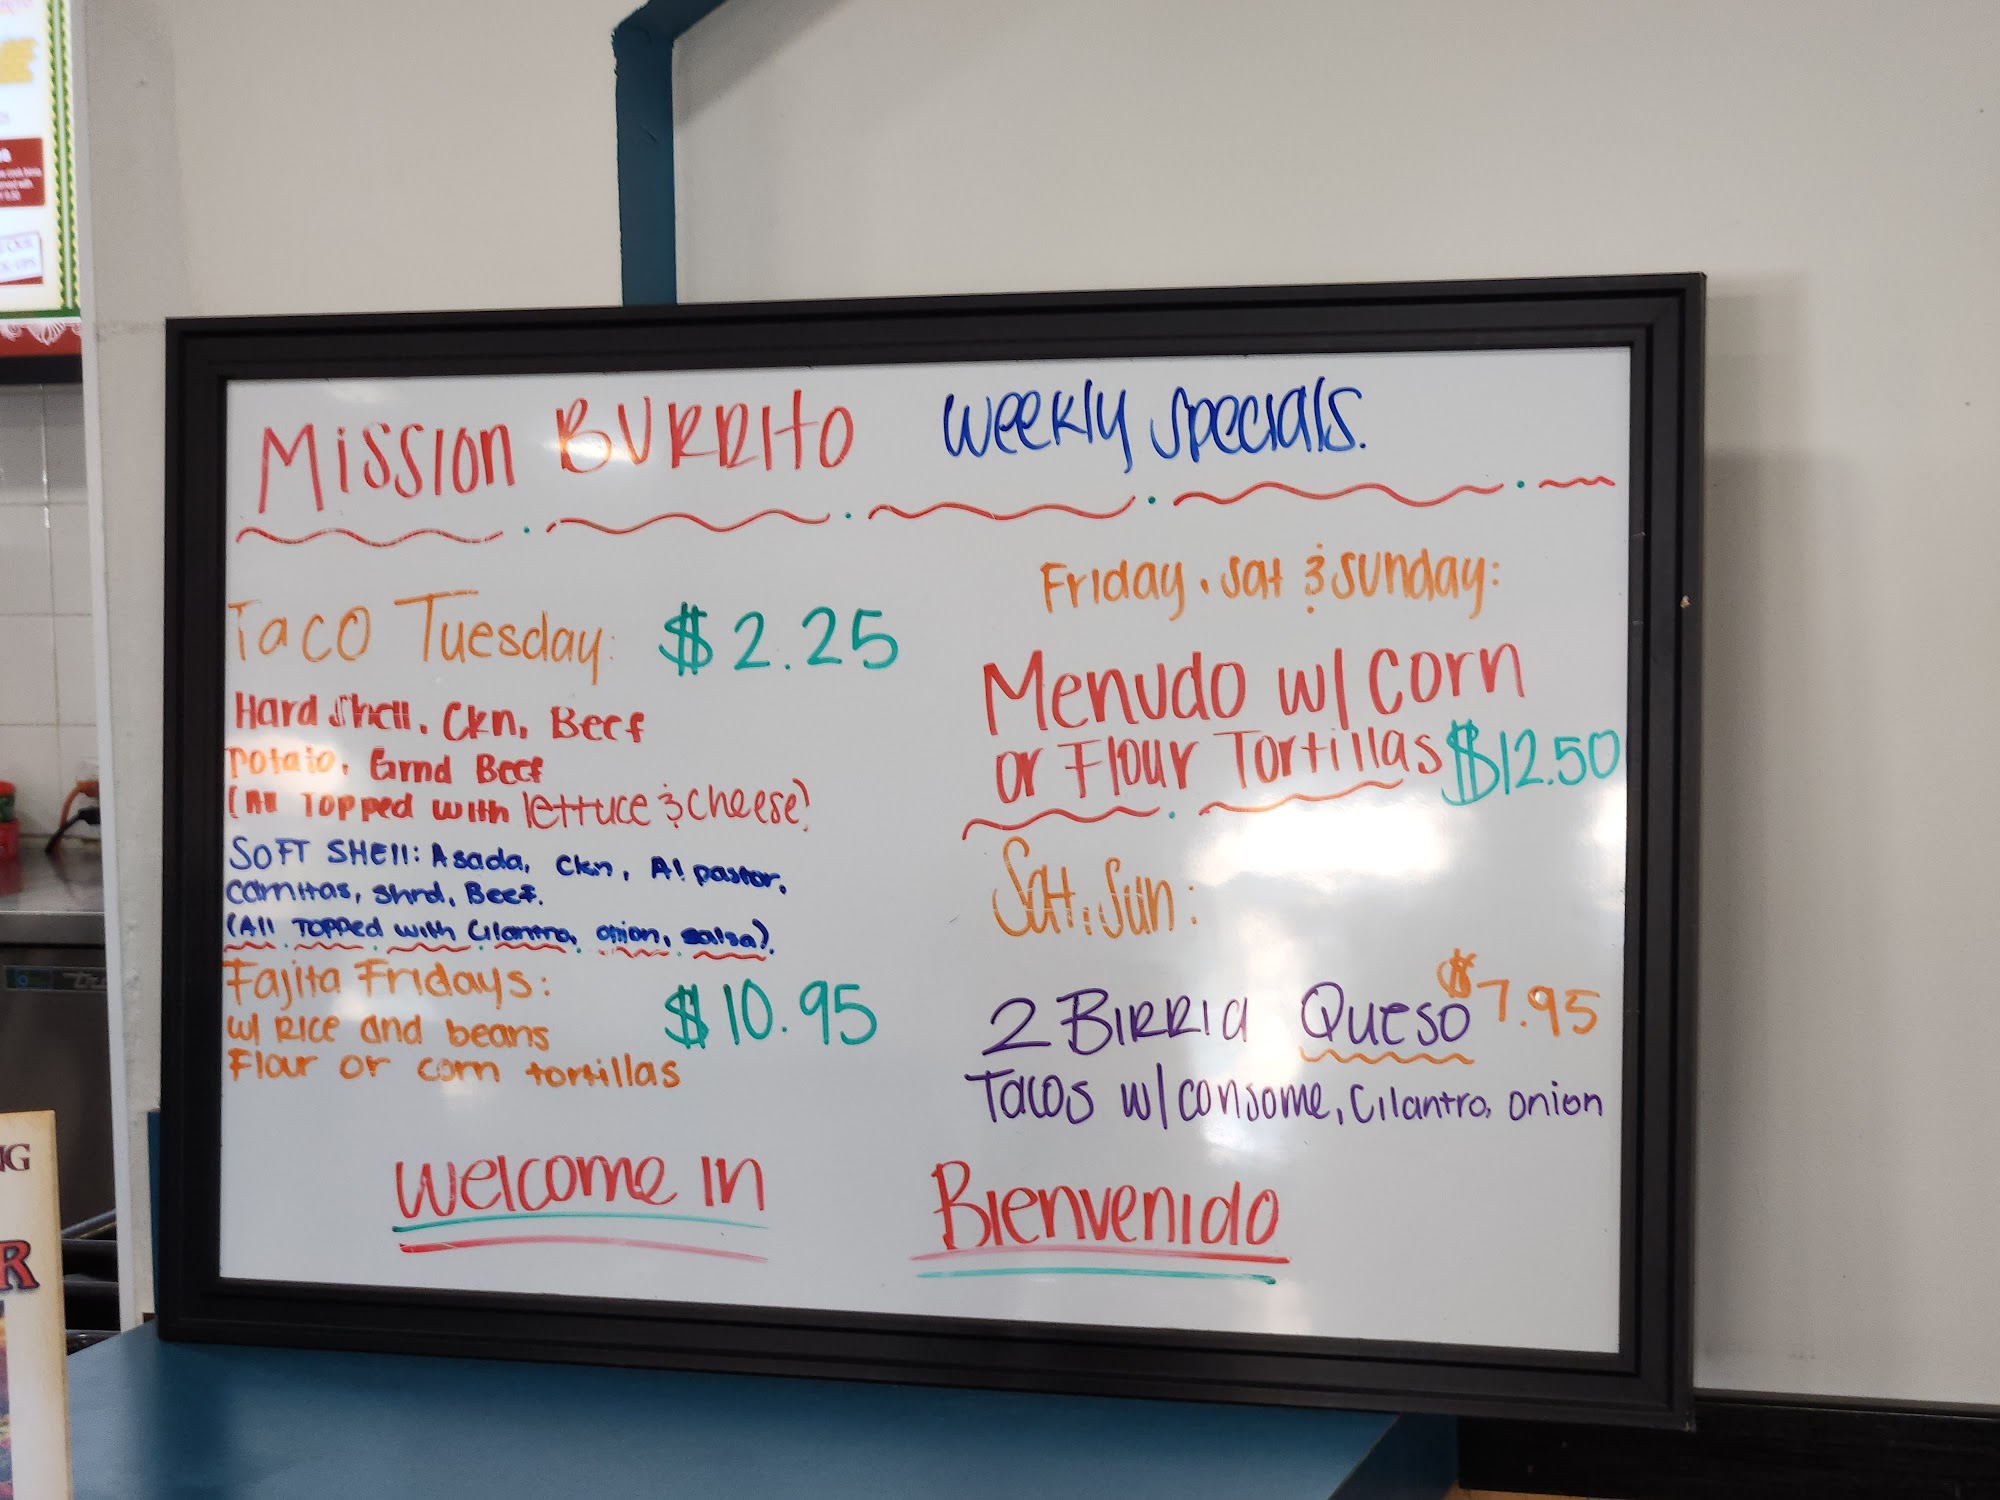 Mission BURRITO weekly specials.
Taco Tuesday: $2.25
Hard Shell, Ckn, Beef
Potato, Grnd Beef
(All Topped with lettuce & cheese)
SOFT SHEll: Asada, Ckn, Al pastor,
carnitas, shrd, Beef.
(All Topped with Cilantro, onion, salsa).
Fajita Fridays:
w/ Rice and beans $10.95
Flour or corn tortillas
Friday, Sat & Sunday:
Menudo w/ corn
or Flour Tortillas $12.50
Sat, Sun:
2 Birria Queso $7.95
Tacos w/ consome, Cilantro, onion
Welcome in Bienvenido
NG
R